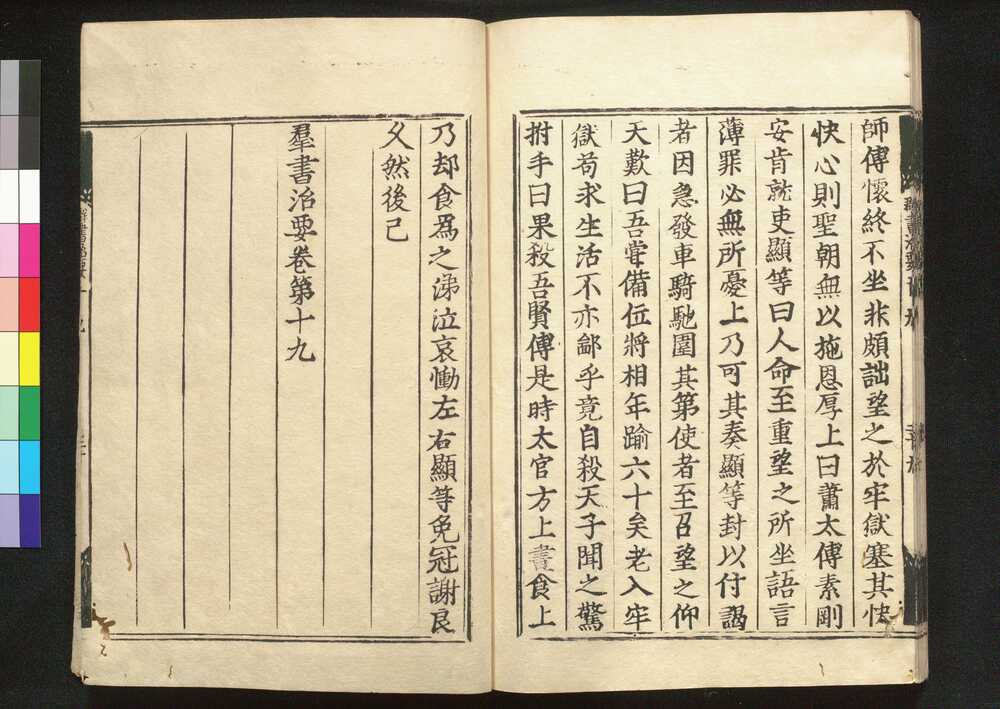 師傅懷終不坐非頗詘望之於牢獄塞其怏
怏心則聖朝無以施恩厚上曰蕭太傅素剛
安肯就吏顯等曰人命至重望之所坐語言
薄罪必無所憂上乃可其奏顯等封以付謁
者因急發車騎馳圍其第使者至召望之仰
天歎曰吾嘗備位將相年踰六十矣老入牢
獄苟求生活不亦鄙乎竟自殺天子聞之驚
拊手曰果殺吾賢傅是時太官方上晝食上
乃却食為之涕泣哀慟左右顯等免冠謝良
久然後已
羣書治要卷第十九